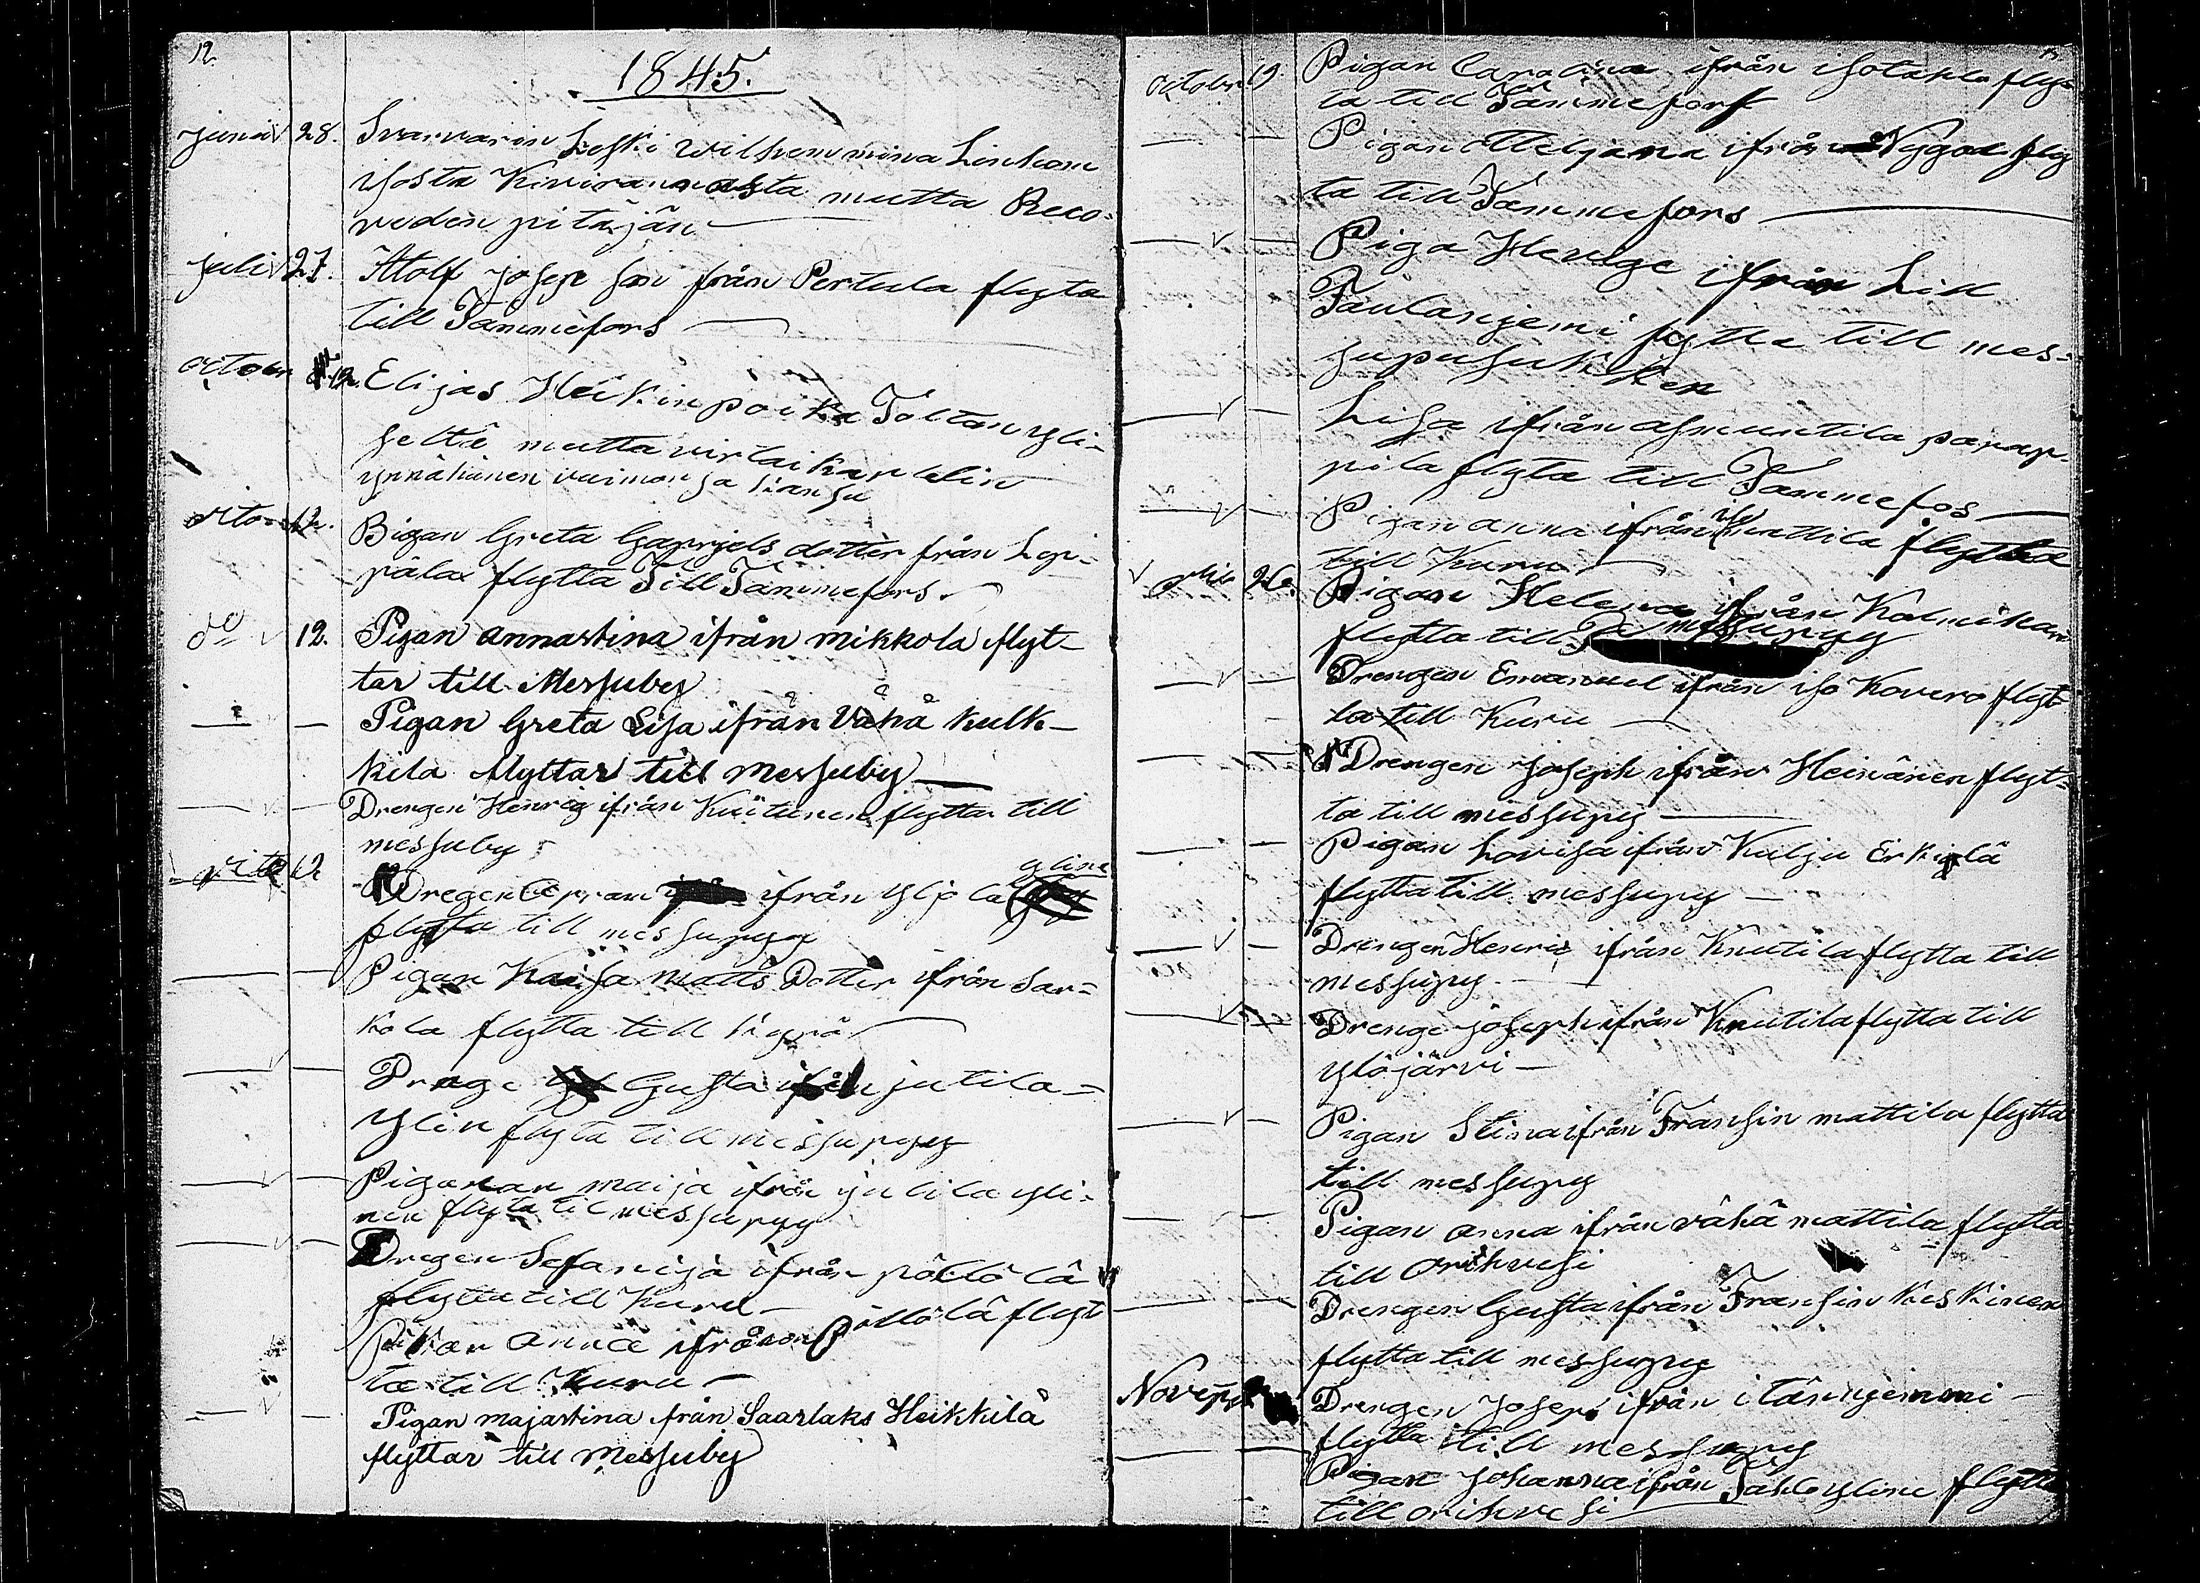 12
1845.
junii 28. Svarvarin Leski Wilhemmina Linholm
isosta Kiviranasta mutta Reco-
veden pitäjän
juli 27. Atolf joseps son från Pertula flyta
till Tammefors
octobr 12. Elijas Heikin poika Toltan yli-
seltä mutta virtai kapelin
ynnä hänen vaimonsa kansa
octo 12. Bigan Greta Gaprjels dotter från Lepi-
pälax flytta Till Tammefors
do 12. Pigan annastina ifrån mikkola flyt-
tar till Messuby
Pigan Greta Lisa ifrån Vähä kulk-
kila flyttar till Messuby
Drengen Henrig ifrån Knutunen flytta till
messuby
octo 12 Dregen Apram ifrån Yljola yline
flytta till messupyy
Pigan Kaisa Matts Dotter ifrån Sar-
kola flytta till Kyrö
Drenge Gusta ifrån jutila
Ylin flyta till messupyy
Piganan maija ifrån jutila yli-
nen flyta til messupyy
Drgen Sefanija ifrån pöllölä
flytta till Kuru
Pikan anna ifrån pöllölä flyt
ta till Kuru
Pigan majastina från Saarlaks Heikkilä
flyttar till Messuby
octobr 19 Pigan Carolina ifrån isotalo flyt-
ta till Tammefors
Pigan Meljana ifrån Nygord flyt
ta till Tammefors
Piga Hevige ifrån Lill
Taulaniemi flytta till mes-
supu
Lisa ifrån Asuntila papap-
pila flyta till Tammefos
Pigan anna ifrån mattila flytta
till Kuru
octo 26. Pigan Helena ifrån Kolmikan
flytta till messupyy
Drengen Emanuel ifrån iso Kovero flyt
ta till Kuru
Drengen joseph ifrån Heinänen flyt-
ta till messupyy
Pigan Lovisa ifrån Kulju Erkkilä
flytta till messupyy
Drengen Henric ifrån Knutila flytta till
messupyy
Drenge joseph ifrån Knutila flytta till
Ylöjärvi
Pigan Stina ifrån Fransin mattila flytta
till messupyy
Pigan anna ifrån vähä mattila flytta
till Orihvesi
Drengen Gusta ifrån Fransin Keskinen
flytta till messupyy
Novemp Drengen Josep ifrån itäniemmi
flytta till messupyy
Pigan Johanna ifrån Takloyline flytta
till orihvesi